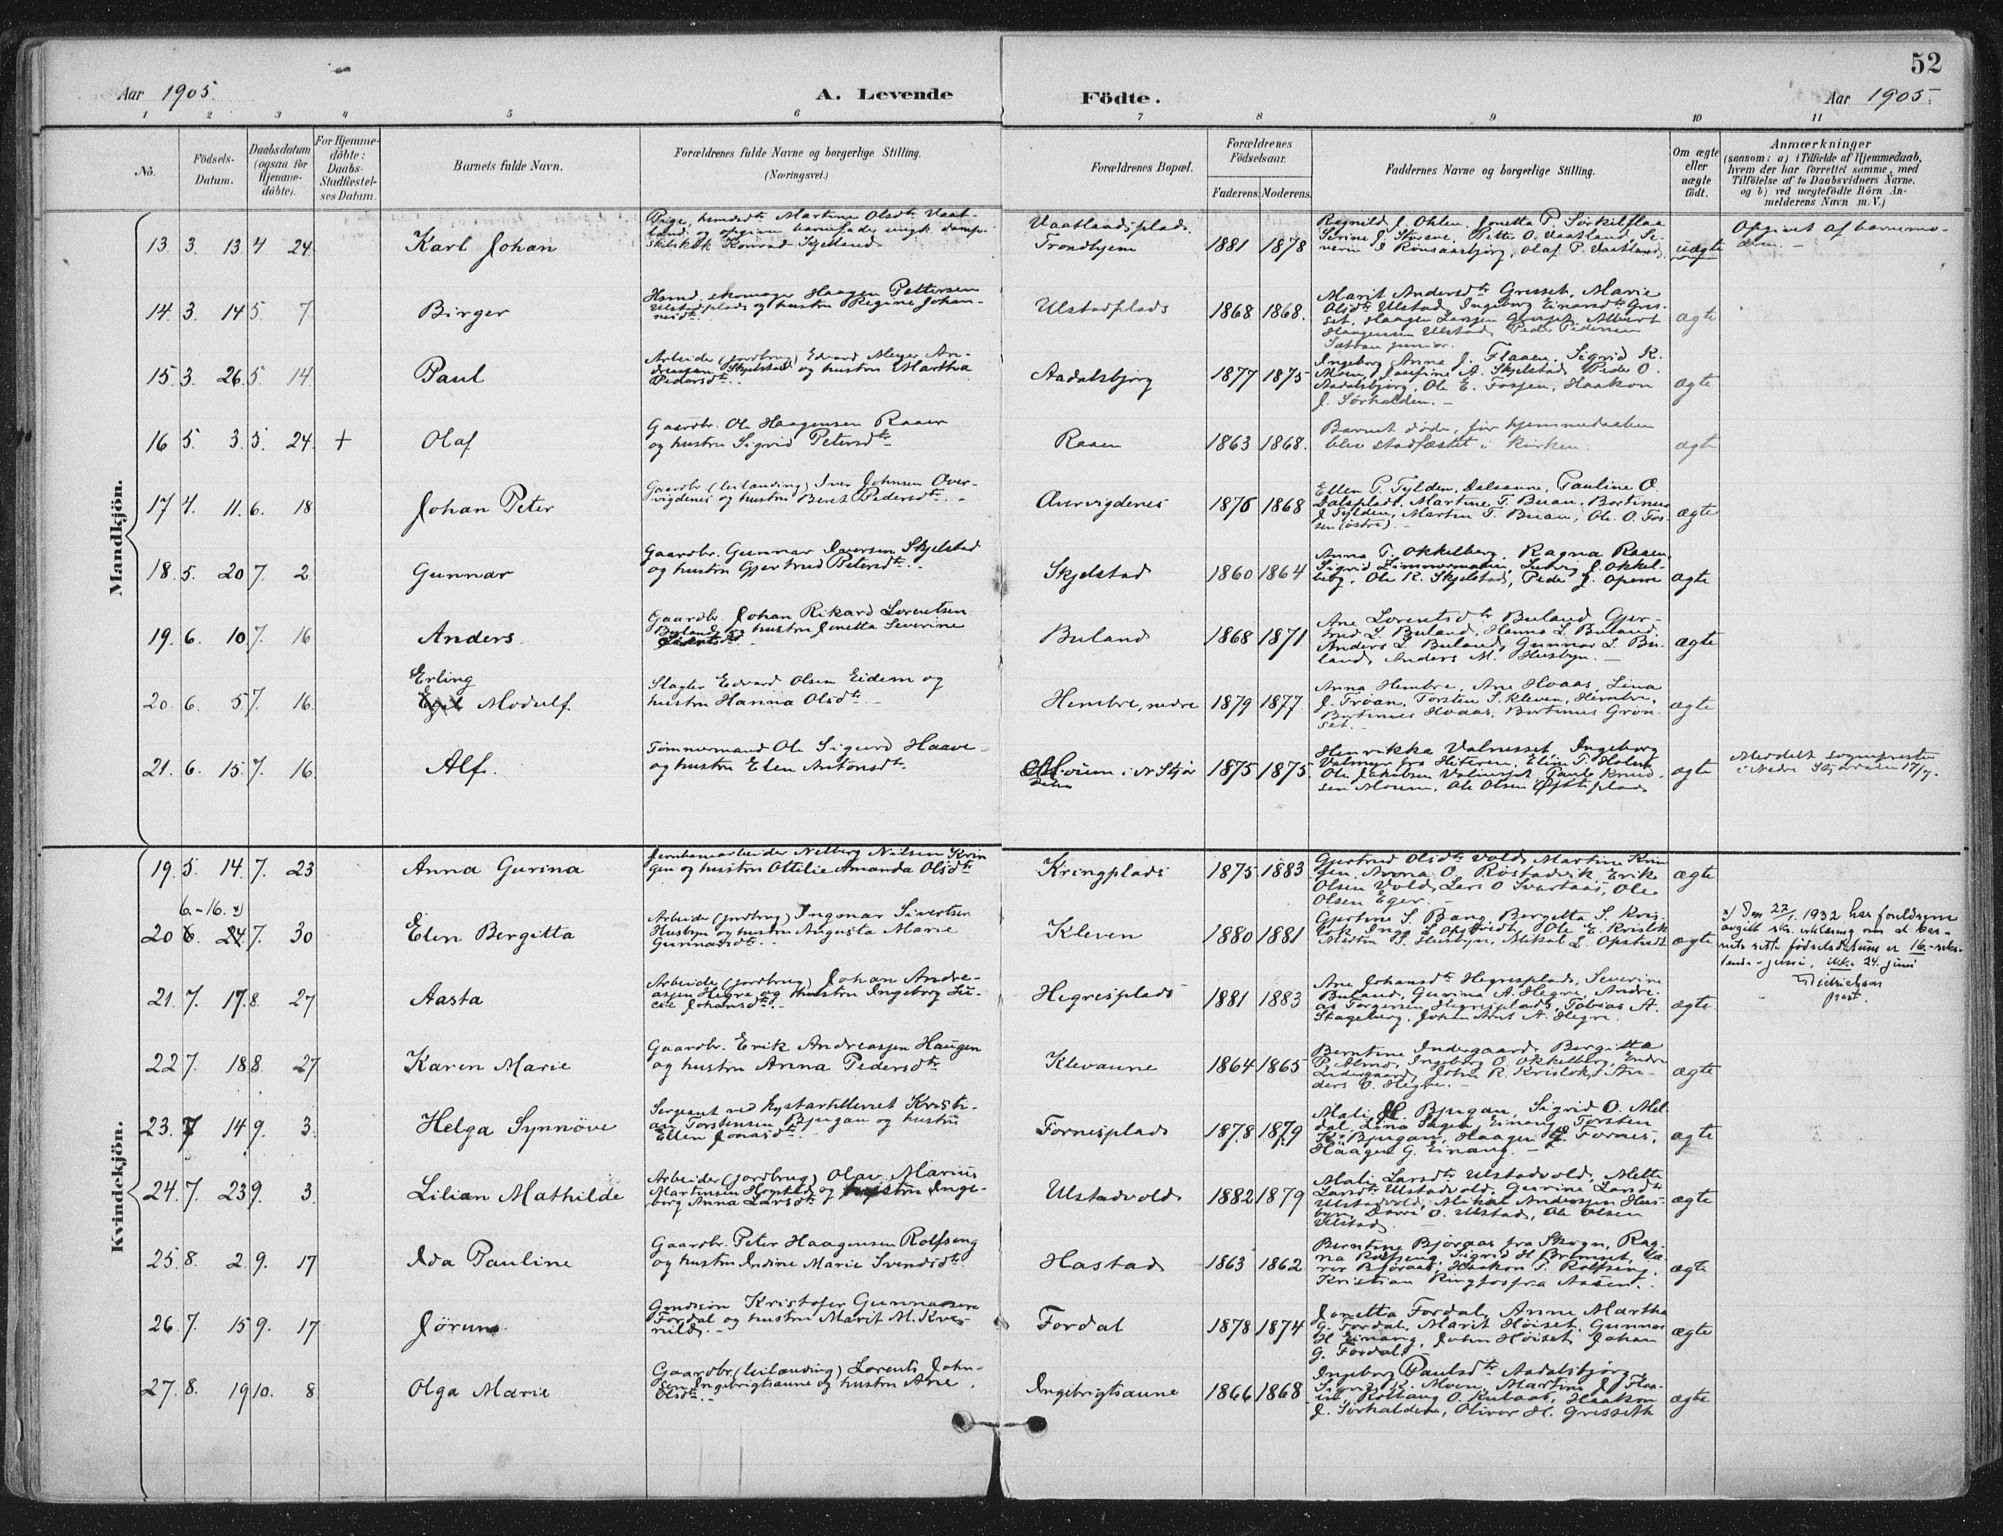 52
Aar 1905.
A. Levende
Födte.
Aar 1905.
1 2 3 4 5 6 7 8 9 10 11
No.
Födsels-
Datum.
Daabsdatum
(ogsaa for
Hjemme-
döbte).
For Hjemme-
döbte:
Daabs-
Stadfæstel-
ses Datum.
Barnets fulde Navn.
Forældrenes fulde Navne og borgerlige Stilling.
(Næringsvei.)
Forældrenes Bopæl.
Forældrenes
Födselsaar.
Faderens. Moderens.
Faddernes Navne og borgerlige Stilling.
Om ægte
eller
uægte
födt.
Anmærkninger
(saasom: a) i Tilfælde af Hjemmedaab,
hvem der har forrettet samme, med
Tilföielse af to Daabsvidners Navne,
og b) ved uægtefödte Börn An-
melderens Navn m. V.)
Mandkjön.
13. 3. 13. 4 24. Karl Johan
Pige, Martine Olsdtr. Vaat-
land, og opgiven barnefader ungk. damp-
skibskok Konrad Skjetlund
Vaatlandsplads.
Trondhjem
1881 1878
Ragnild J. Ohlen, Jonetta P.
uægte
Opgivet af barnemo-
deren. -
14. 3. 14 5 7. Birger
Husmd. skomager Haagen Pettersen
Ulstadplads og hustru Regine Johan-
nesdtr.
Ulstadplads 1868 1868.
Marit Andersdtr. Grisset, Marie
Olsdtr. Ulstad, Ingeborg Einarsdtr. Gris-
set, Haagen Larssen Grisset, Albert
Haagensen Ulstad, Peder Pedersen
junior.
ægte
15. 3. 26. 5 14. Paul
Arbeider (jordbrug) Edvard Meyer An-
dreassen Skjelstad og hustru Martha
Pedersdtr.
Aadalsbjørg 1877 1875
Ingeborg Anna J. Flaaen, Sigrid K.
Moen, Josefine A. Skjelstad, Peder O.
Aadalsbjørg, Ole E. Fossen, Haakon
J. Sørhalden. -
ægte
16 5. 3. 5. 24. + Olaf
Gaardbr. Ole Haagensen Raaen
og hustru Sigrid Petersdtr.
Raaen 1863 1868.
Barnet døde, før hjemmedaaben
blev stadfæstet i kirken.
ægte
17 4. 11. 6. 18 Johan Peter
Gaardbr. (leilænding) Iver Johnsen Over-
vigdenes og hustru Beret Pedersdtr.
Overvigdenes 1876 1868
Ellen P. Fylden, Dalsaune, Pauline O.
Dalsplads, Martine T. Buan, Bertinus
J. Fylden, Martin T. Buan, Ole O. Fos-
sen (østre). -
ægte
18. 5. 20 7. 2 Gunnar
Gaardbr. Gunnar Iversen Skjelstad
og hustru Gjertrud Petersdtr.
Skjelstad 1860 1864
Anna T. Okkelberg, Ragna Raaen,
Sigrid Zimmermann, Ludvig J. Okkel-
berg, Ole K. Skjelstad, Peder J. Opem
ægte
19. 6. 10 7. 16 Anders.
Gaardbr. Johan Rikard Lorentsen
Buland og hustru Jonetta Severine
Buland 1868 1871
Ane Lorentsdtr. Buland, Gjer-
trud L. Buland, Hanna L. Buland,
Anders L. Buland, Gunnar L. Bu-
land, Anders M. Husbyn. -
ægte
20. 6. 5 7. 16. Erling
Egil Modulf.
Slagter Edvard Olsen Eidem og
hustru Hanna Olsdtr.
Hembre, nedre 1879 1877
Anna Hembre, Ane Hovaas, Lina
J. Frøan, Torsten S. Kleven, Hembre,
Bertinus Hovaas, Bertinus Grøn-
set.
ægte
21. 6. 15. 7. 16 Alf.
Tømmermand Ole Sigurd Haave
og hustru Elen Antonsdtr.
Moum i N. Stjør-
dalen
1875 1875.
Henrikka Valnesset, Ingeborg
Valmyr fra Hiteren, Elen T. Holan,
Ole Jakobsen Valnesset, Paul Knud-
sen Moum, Ole Olsen Øfstiplads
ægte
Meddelt sognepresten
i Nedre Stjørdalen 17/7.
Kvindekjön.
19. 5. 14. 7. 23 Anna Gurina
Jernbanearbeider Nelberg Nilsen Krin
gen og hustru Ottilie Amanda Olsdtr.
Kringplads 1875 1883
Gjertrud Olsdtr. Vold, Martine Krin
gen, Anna O. Røstadvik, Erik
Olsen Vold, Lars O. Svartaas, Ole
Olsen Eger. -
ægte
6.-16. x)
20 6. 24. 7. 30 Elen Bergitta
Arbeider (jordbrug) Ingmar Sivertsen
Husbyn og hustru Augusta Marie
Gunnarsdtr.
Kleven 1880 1881
Gjertine S. Bang, Bergitta S. Kris-
lok, Inga L. Opstvedt, Ole E. Krislok
Martin S. Husbyn, Mikal L. Opstvedt
ægte
x) Den 22/1. 1932 har foreldrene
avgitt skr. erklæring om at bar-
nets rette fødselsdatum er 16.-seks-
tende - juni, ikke 24. juni
Didrichsen
prest.
21. 7. 17. 8. 27 Aasta
Arbeider (jordbrug) Johan Andre-
assen Hegre og hustru Ingeborg Lu-
cie Johansdtr.
Hegresplads 1881 1883
Ane Johansdtr. Hegresplads, Severine
Buland, Gurina A. Hegre, Andre-
as Torgersen Hegresplads, Tobias A.
Stageberg, Johan Arnt A. Hegre.
ægte
22 7. 18 8. 27 Karen Marie
Gaardbr. Erik Andreassen Haugen
og hustru Anna Pedersdtr.
Klevaune 1864 1865
Berntine Indergaard, Bergitta
P. Almo, Ingeborg O. Okkelberg, Endre
Indergaard, John R. Krislok, An-
ders O. Hegre. -
ægte
23. 7 14 9. 3. Helga Synnöve
Sergeant ved kystartilleriet Kristi-
an Torstensen Bjugan og hustru
Ellen Jonasdtr.
Fornesplads 1878 1879
Mali H. Bjugan, Sigrid O. Mel-
dal, Lina Sagen, Einang, Torsten
K. Bjugan, Haagen G. Fornes,
Haagen G. Einang. -
ægte
24. 7. 23 9. 3. Lilian Mathilde
Arbeider (jordbrug) Olav Marius
Martinsen Hopstad og hustru Inge-
borg Anna Larsdtr.
Ulstadvold 1882 1879
Mali Larsdtr. Ulstadvold, Mette
Larsdtr. Ulstadvold, Gurine Larsdtr.
Ulstadvold, Mikal Andersen Hus-
byn, O. Ulstad, Ole Olsen
Ulstad
ægte
25. 8. 2. 9. 17 Ida Pauline
Gaardbr. Peter Haagensen Rolfseng
og hustru Indine Marie Svendsdtr.
Hastad 1863 1862
Berntine Bjøraas fra Skogn, Rag-
na Rolfseng, Sigrid H. Brennet,
Bjøraas, Haakon P. Rolfseng,
Kristian Ringfos fra Aasen.
ægte
26. 7. 15 9. 17 Jørun
Grndsøn Kristofer Gunnarsen
Fordal og hustru Marit M. Kves-
nild. -
Fordal 1878 1874
Jonetta Fordal, Anne Martha
G. Fordal, Marit Høiset, Gunnar
H. Einang, John Høiset, Johan
G. Fordal.
ægte
27. 8. 19 10. 8 Olga Marie
Gaardbr. (leilænding) Lorents John-
sen Ingebrigtsaune og hustru Ane
Olsdtr.
Ingebrigtsaune 1866 1868
Ingeborg Paulsdtr. Aadalsbjørg,
Sigrid K. Moen, Martine J. Flaa-
en, Rollaug O. Kulaas, Haakon
J. Sørhalden, Oliver H. Grisseth
ægte